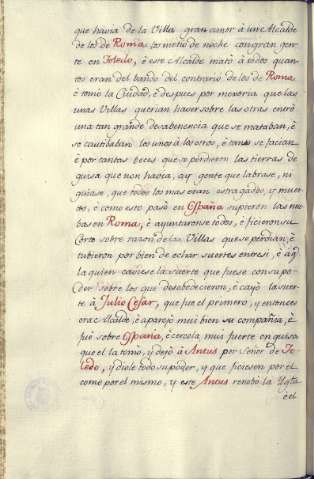 que havia de la Villa gran amor à une Alcalde
de los de Roma, se metio de noche con gran gen-
te en Toledo, è este Alcalde matò à todos quan-
tos eran del bando del contrario de los de Roma
è tomò la Ciudad, è despues por memoria que las
unas Villas querian haver sobre las otras entrò
una tan grande desabenencia que se mataban, è
se cautibaban los unos à los otros, è
è por tantas veces que se perdieron las tierras de
guisa que non havia, aÿ gente que labrase, ni
que todos los mas eran estragados, y muer-
tos, è como esto pasò en España supieron las nue-
bas en Roma, è ayuntaronse todos, è ficieron su
Corte sobre razon de las Villas que se perdian, è
tubieron por bien de echar suertes entre si, è à aq.l
la quien caÿese la suerte que fuese con su po-
der sobre los que desobedecieron, è cayò la suer-
te à Julio Cesar, que fue el primero, y entonces
era Alcalde, è aparejò mui bien su compañia, è
fuè sobre España, è cercola mui fuerte en guisa
que el la tomò, y dejò à Ancus por Señor de To-
ledo, y diole todo su poder, y que ficiesen por el
como por el mismo, y este Ancus renobò la Ygle
è el